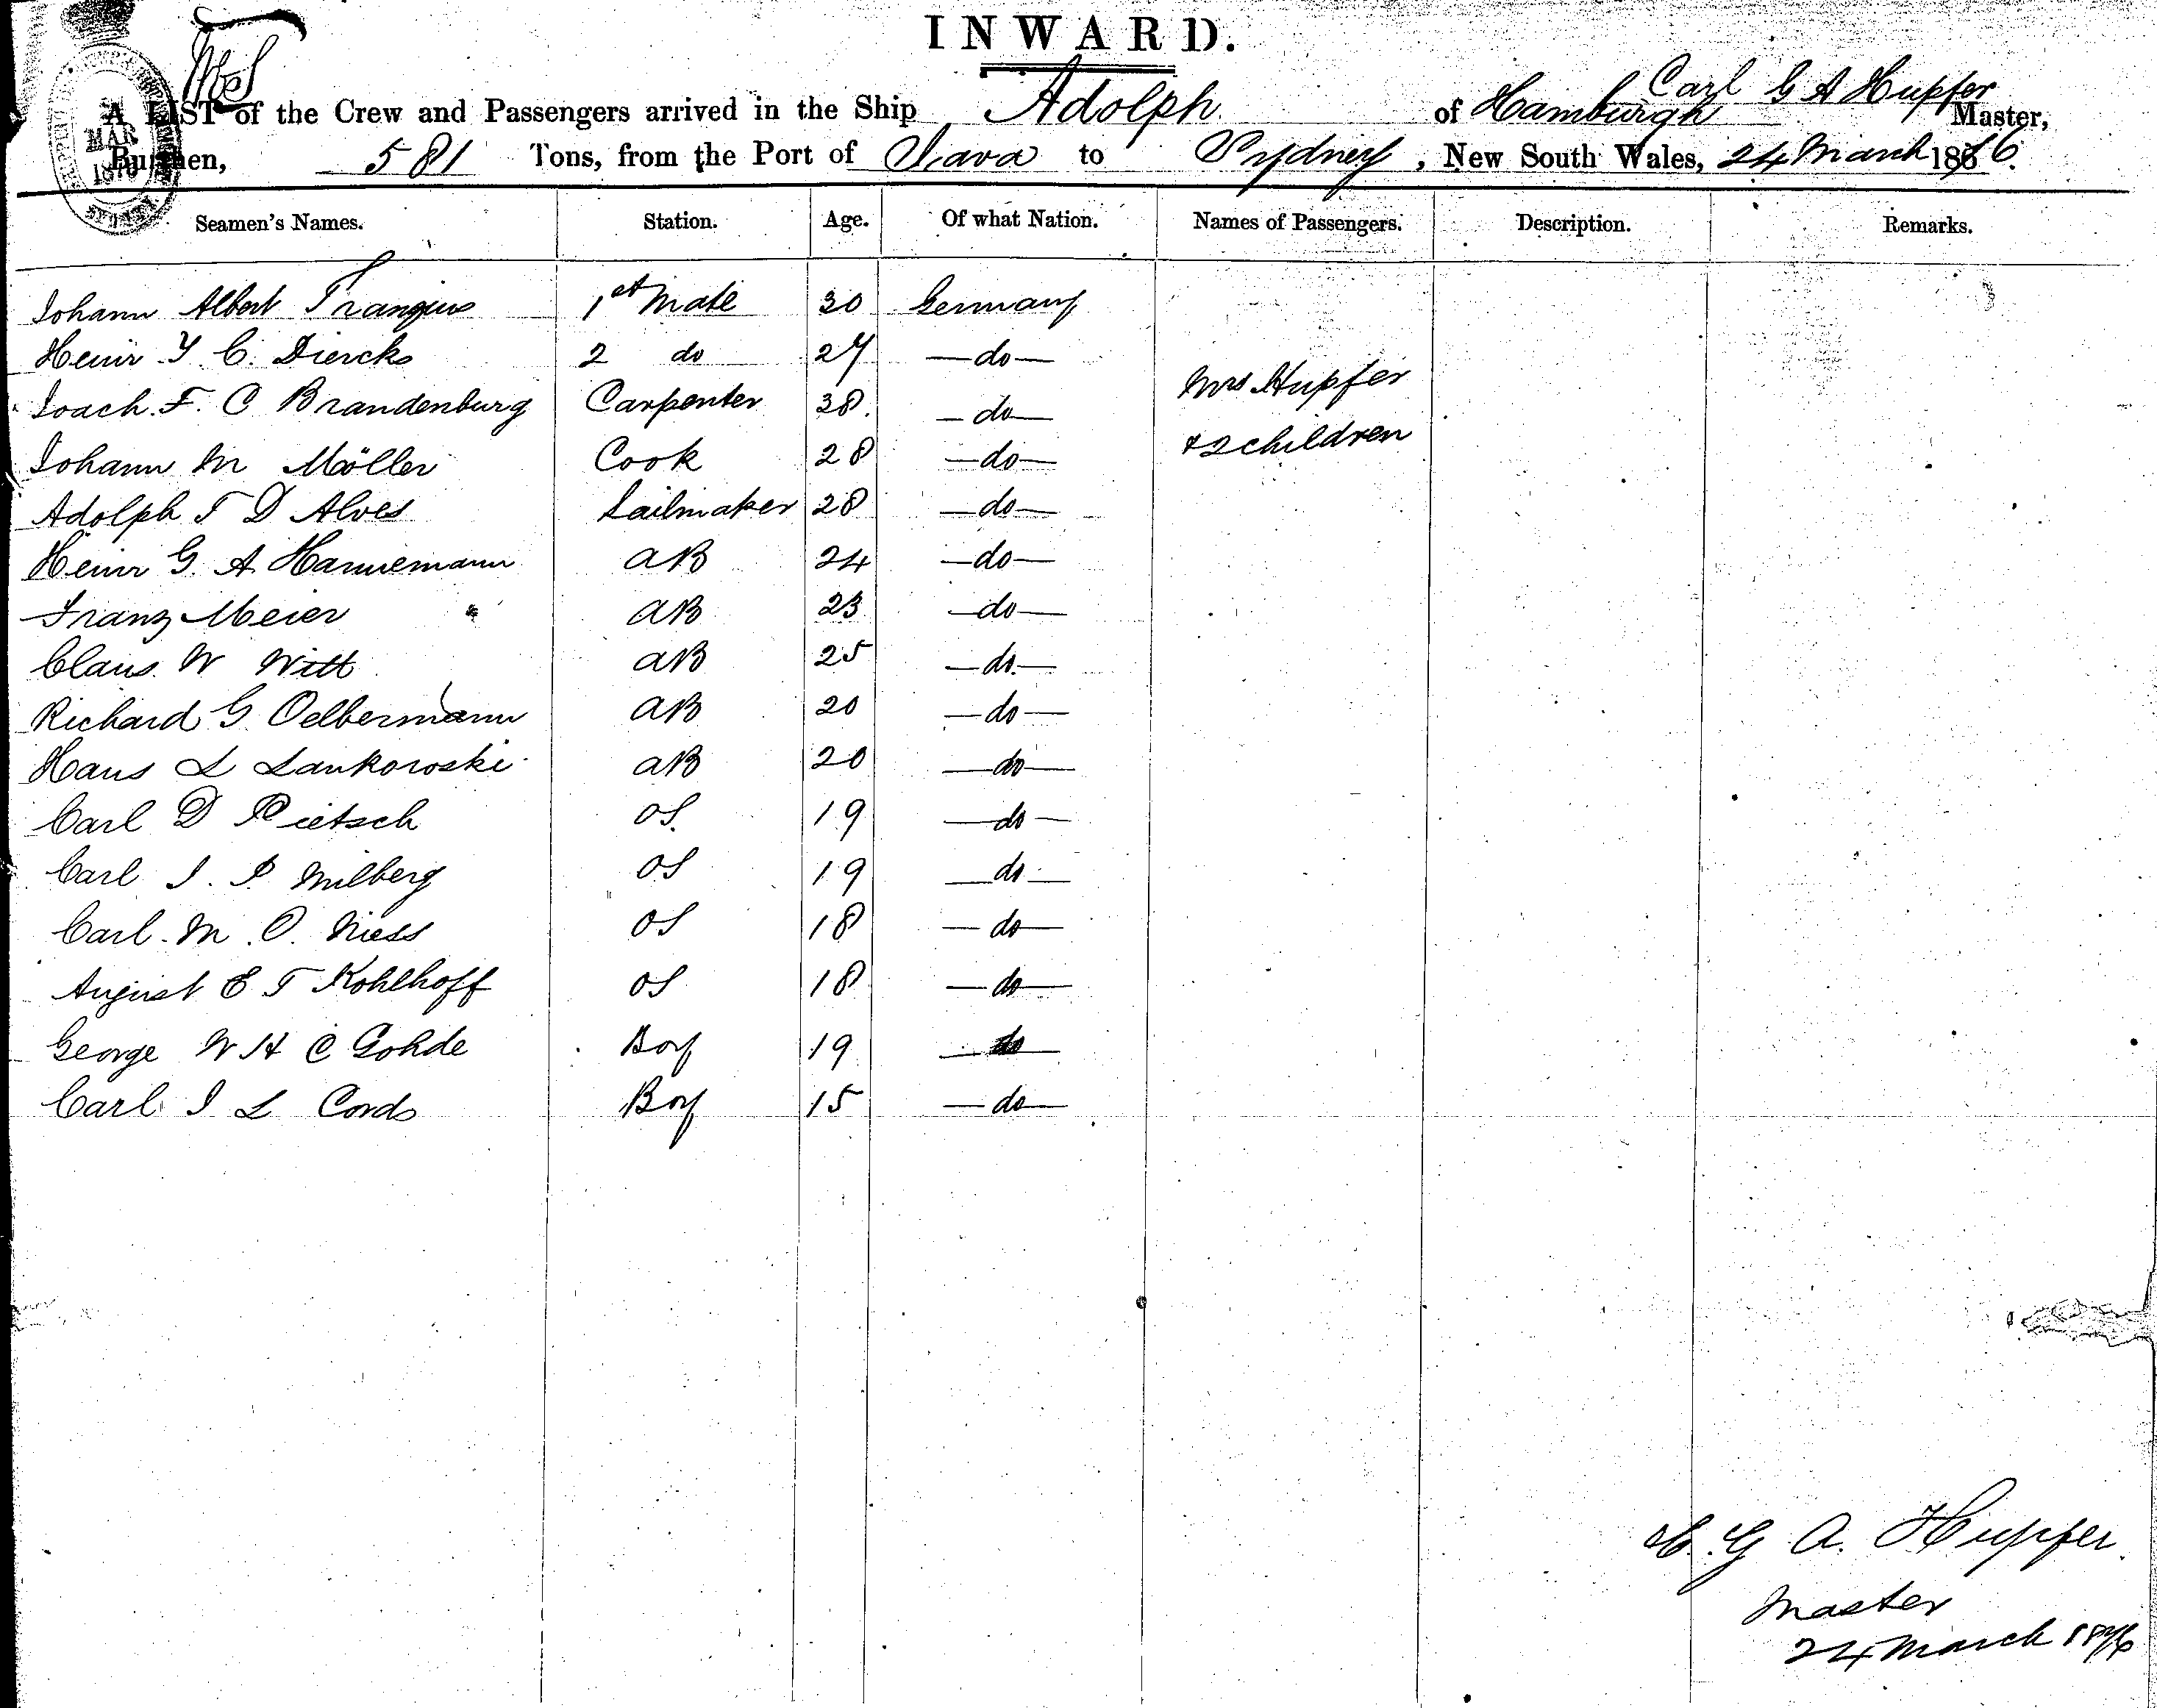 INWARD.
A LIST of the Crew and Passengers arrived in the Ship Adolph of Hamburgh Carl G A Hupfer Master,
Burthen, 581 Tons, from the Port of Java to Sydney, New South Wales, 24 March 1876.
Seamen's Names. Station. Age. Of what Nation. Names of Passengers. Description. Remarks.
Johann Albert 1st Mate 30 Germany
Heinr C. Diercks 2 do 27 —do—
Joach. F. C Brandenburg Carpenter 38. —do—
Mrs Hupfer
Johann M Möller Cook 28 —do—
& 2 children
Adolph T D Alves Sailmaker 28 —do—
Heinr G. A. Hannemann AB 24 —do—
Franz Meier AB 23 —do—
Claus W Witt AB 25 —do—
Richard G. Oelbermann AB 20 —do—
Hans L Lankowski AB 20 —do—
Carl D Pietsch OS. 19 —do—
Carl J. P. Milberg OS 19 —do—
Carl M. O. Niess OS 18 —do—
August E T Kohlhoff OS 18 —do—
George W H C Gohde Boy 19 —do—
Carl J L Cords Boy 15 —do—
C. G A. Hupfer
Master
24 March 1876